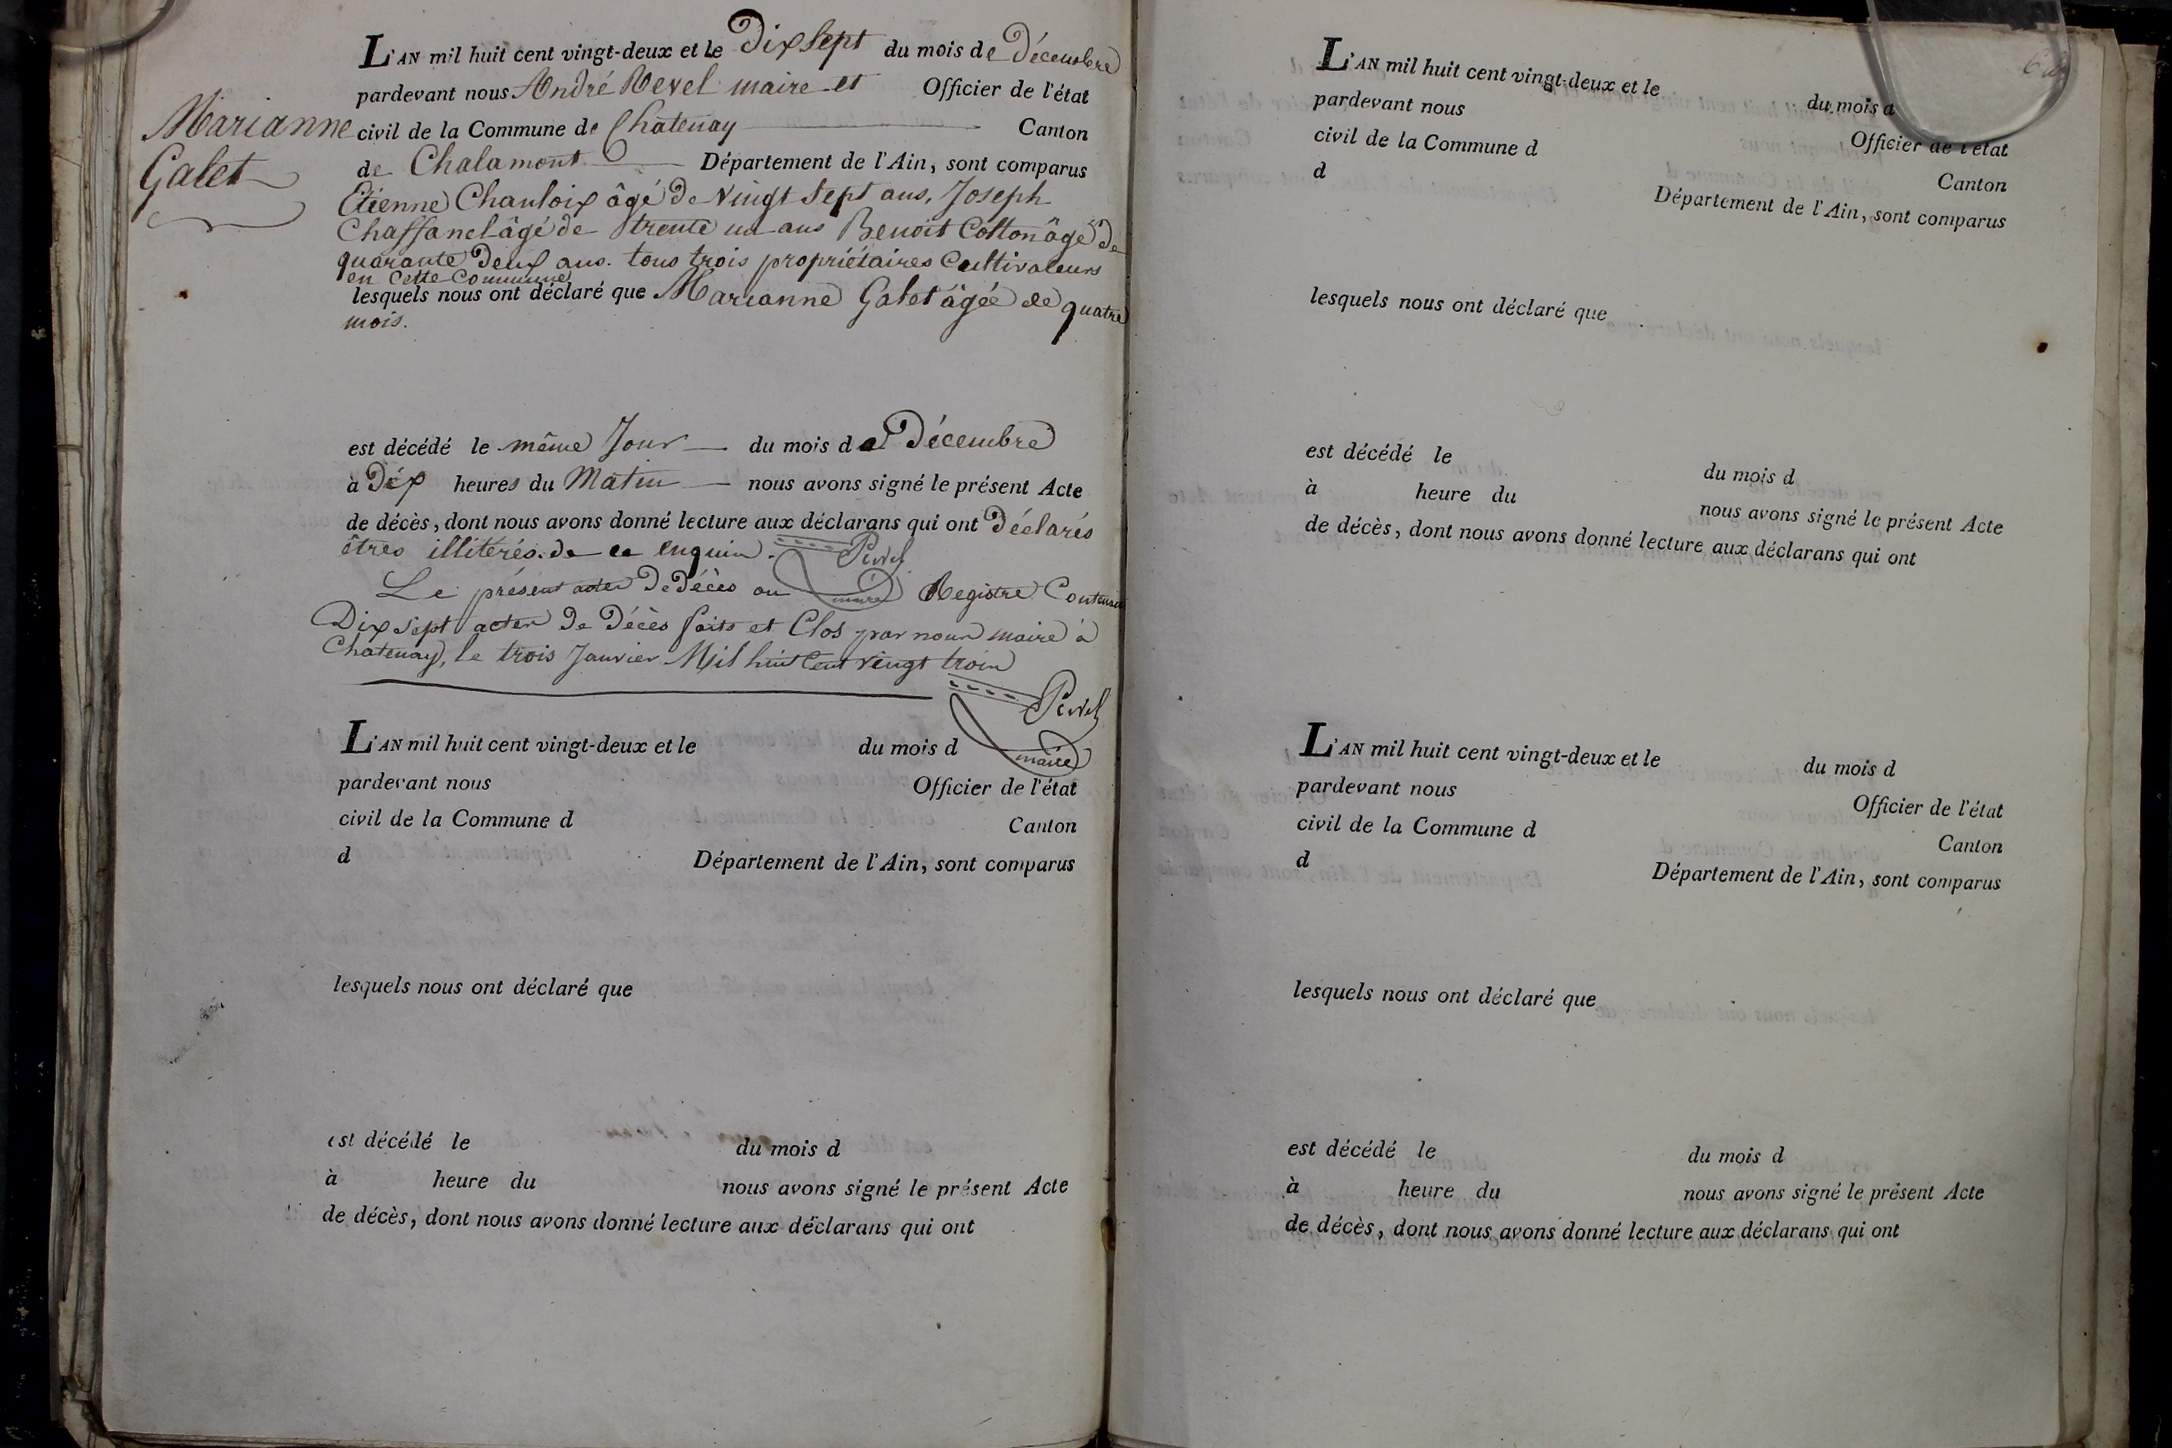 Marianne
Galet
L'AN mil huit cent vingt-deux et le Dix sept du mois de Décembre
pardevant nous André Revel maire et Officier de l'état
civil de la Commune de Chatenay Canton
de Chalamont Département de l'Ain, sont comparus
Etienne âgé de vingt sept ans, Joseph
Chaffanel âgé de trente un ans Benoit Cotton âgé de
quarante Deux ans. tous trois propriétaires Cultivateurs
en Cette Commune
lesquels nous ont déclaré que Marianne Galet âgée de quatre
mois.
est décédé le même Jour du mois de Décembre
à Dix heures du Matin nous avons signé le présent Acte
de décès, dont nous avons donné lecture aux déclarans qui ont Déclarés
êtres illitérés. de ce enquin.
maire
Le présent De Décès au Registre
Dix sept acter De Décès faits et Clos par nous maire à
Chatenay, le trois Janvier Mil huit Cent vingt trois
maire
L'AN mil huit cent vingt-deux et le du mois d
pardevant nous Officier de l'état
civil de la Commune d Canton
d Département de l'Ain, sont comparus
lesquels nous ont déclaré que
est décédé le du mois d
à heure du nous avons signé le présent Acte
de décès, dont nous avons donné lecture aux déclarans qui ont
L'AN mil huit cent vingt-deux et le du mois d
pardevant nous Officier de l'état
civil de la Commune d Canton
d Département de l'Ain, sont comparus
lesquels nous ont déclaré que
est décédé le du mois d
à heure du nous avons signé le présent Acte
de décès, dont nous avons donné lecture aux déclarans qui ont
L'AN mil huit cent vingt-deux et le du mois d
pardevant nous Officier de l'état
civil de la Commune d Canton
d Département de l'Ain, sont comparus
lesquels nous ont déclaré que
est décédé le du mois d
à heure du nous avons signé le présent Acte
de décès, dont nous avons donné lecture aux déclarans qui ont